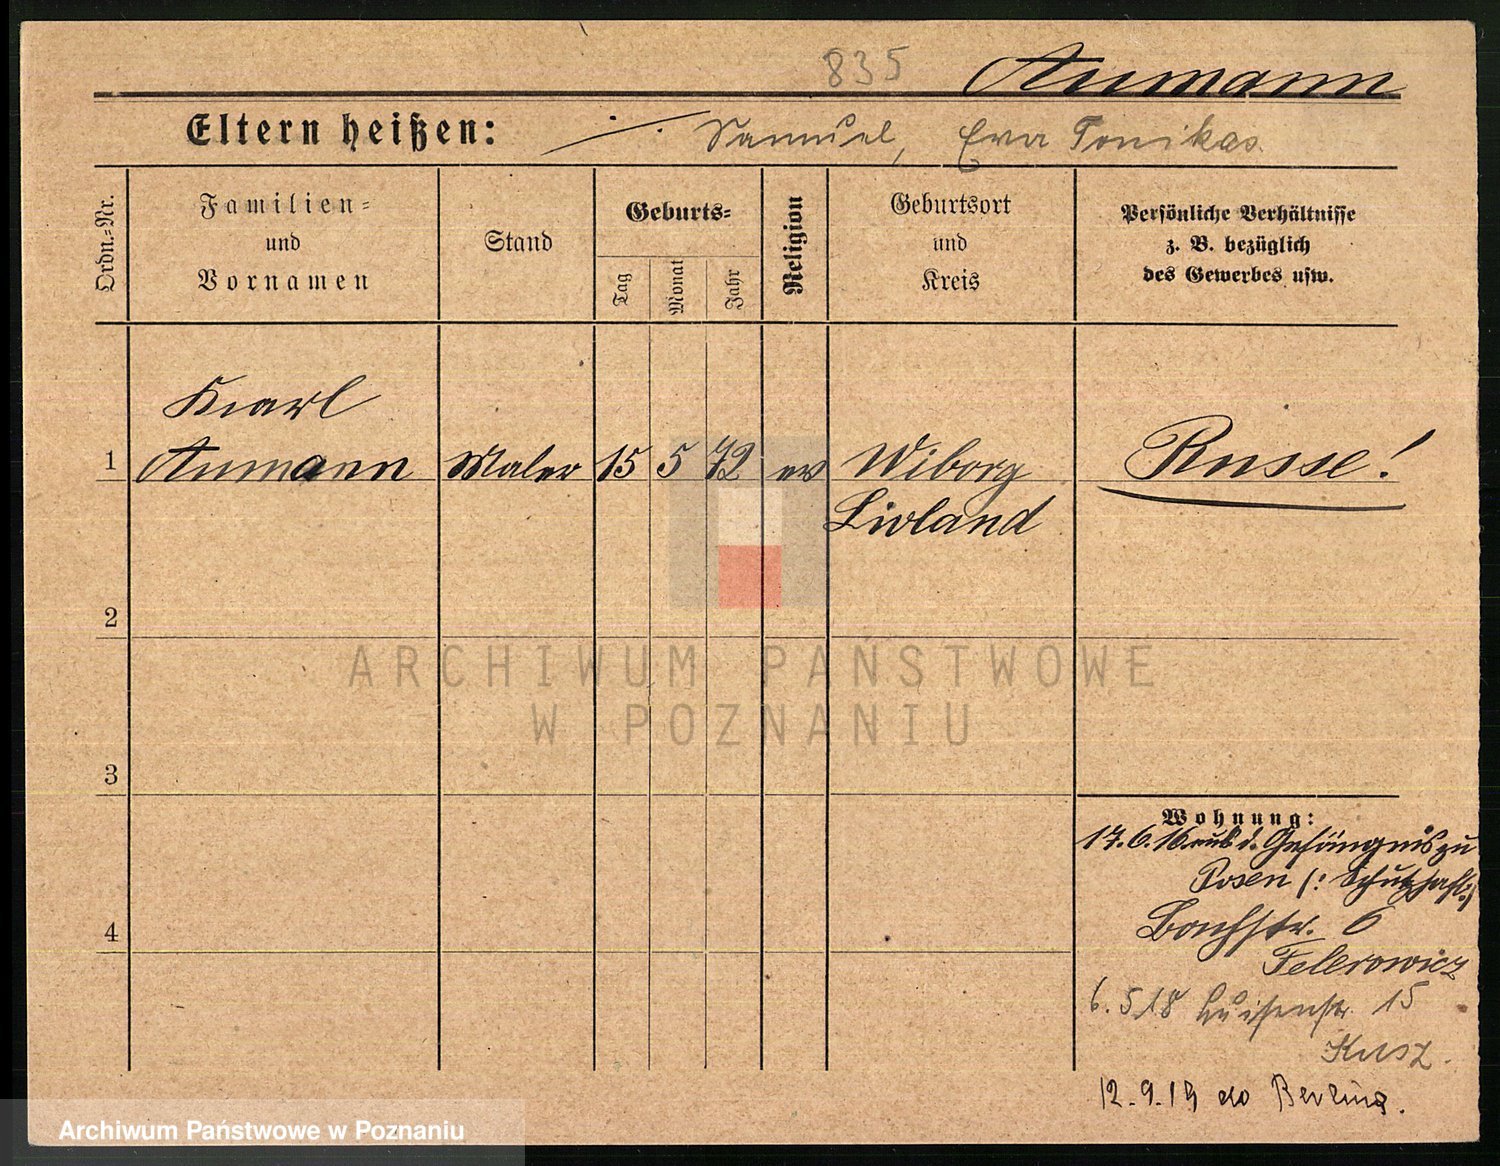 835 Aumann
Eltern heißen: Samuel, Eva Tonikas
Ordn.=Nr.
Familien=
und
Vornamen
Stand
Geburts=
Tag
Monat
Jahr
Religion
Geburtsort
und
Kreis
Persönliche Verhältnisse
z. B. bezüglich
des Gewerbes usw.
Karl
1 Aumann Maler 15 5 72 ev Wiborg Russe!
Livland
2
3
4
Wohnung:
17.6.16 aus d. Gefängnis zu
Posen (: Schutzhaft :)
Bachstr. 6
Felerowicz
6.5.18 Luisenstr. 15
Kusz.
12.9.19 do Berlina.
ARCHIWUM PAŃSTWOWE
W POZNANIU
Archiwum Państwowe w Poznaniu